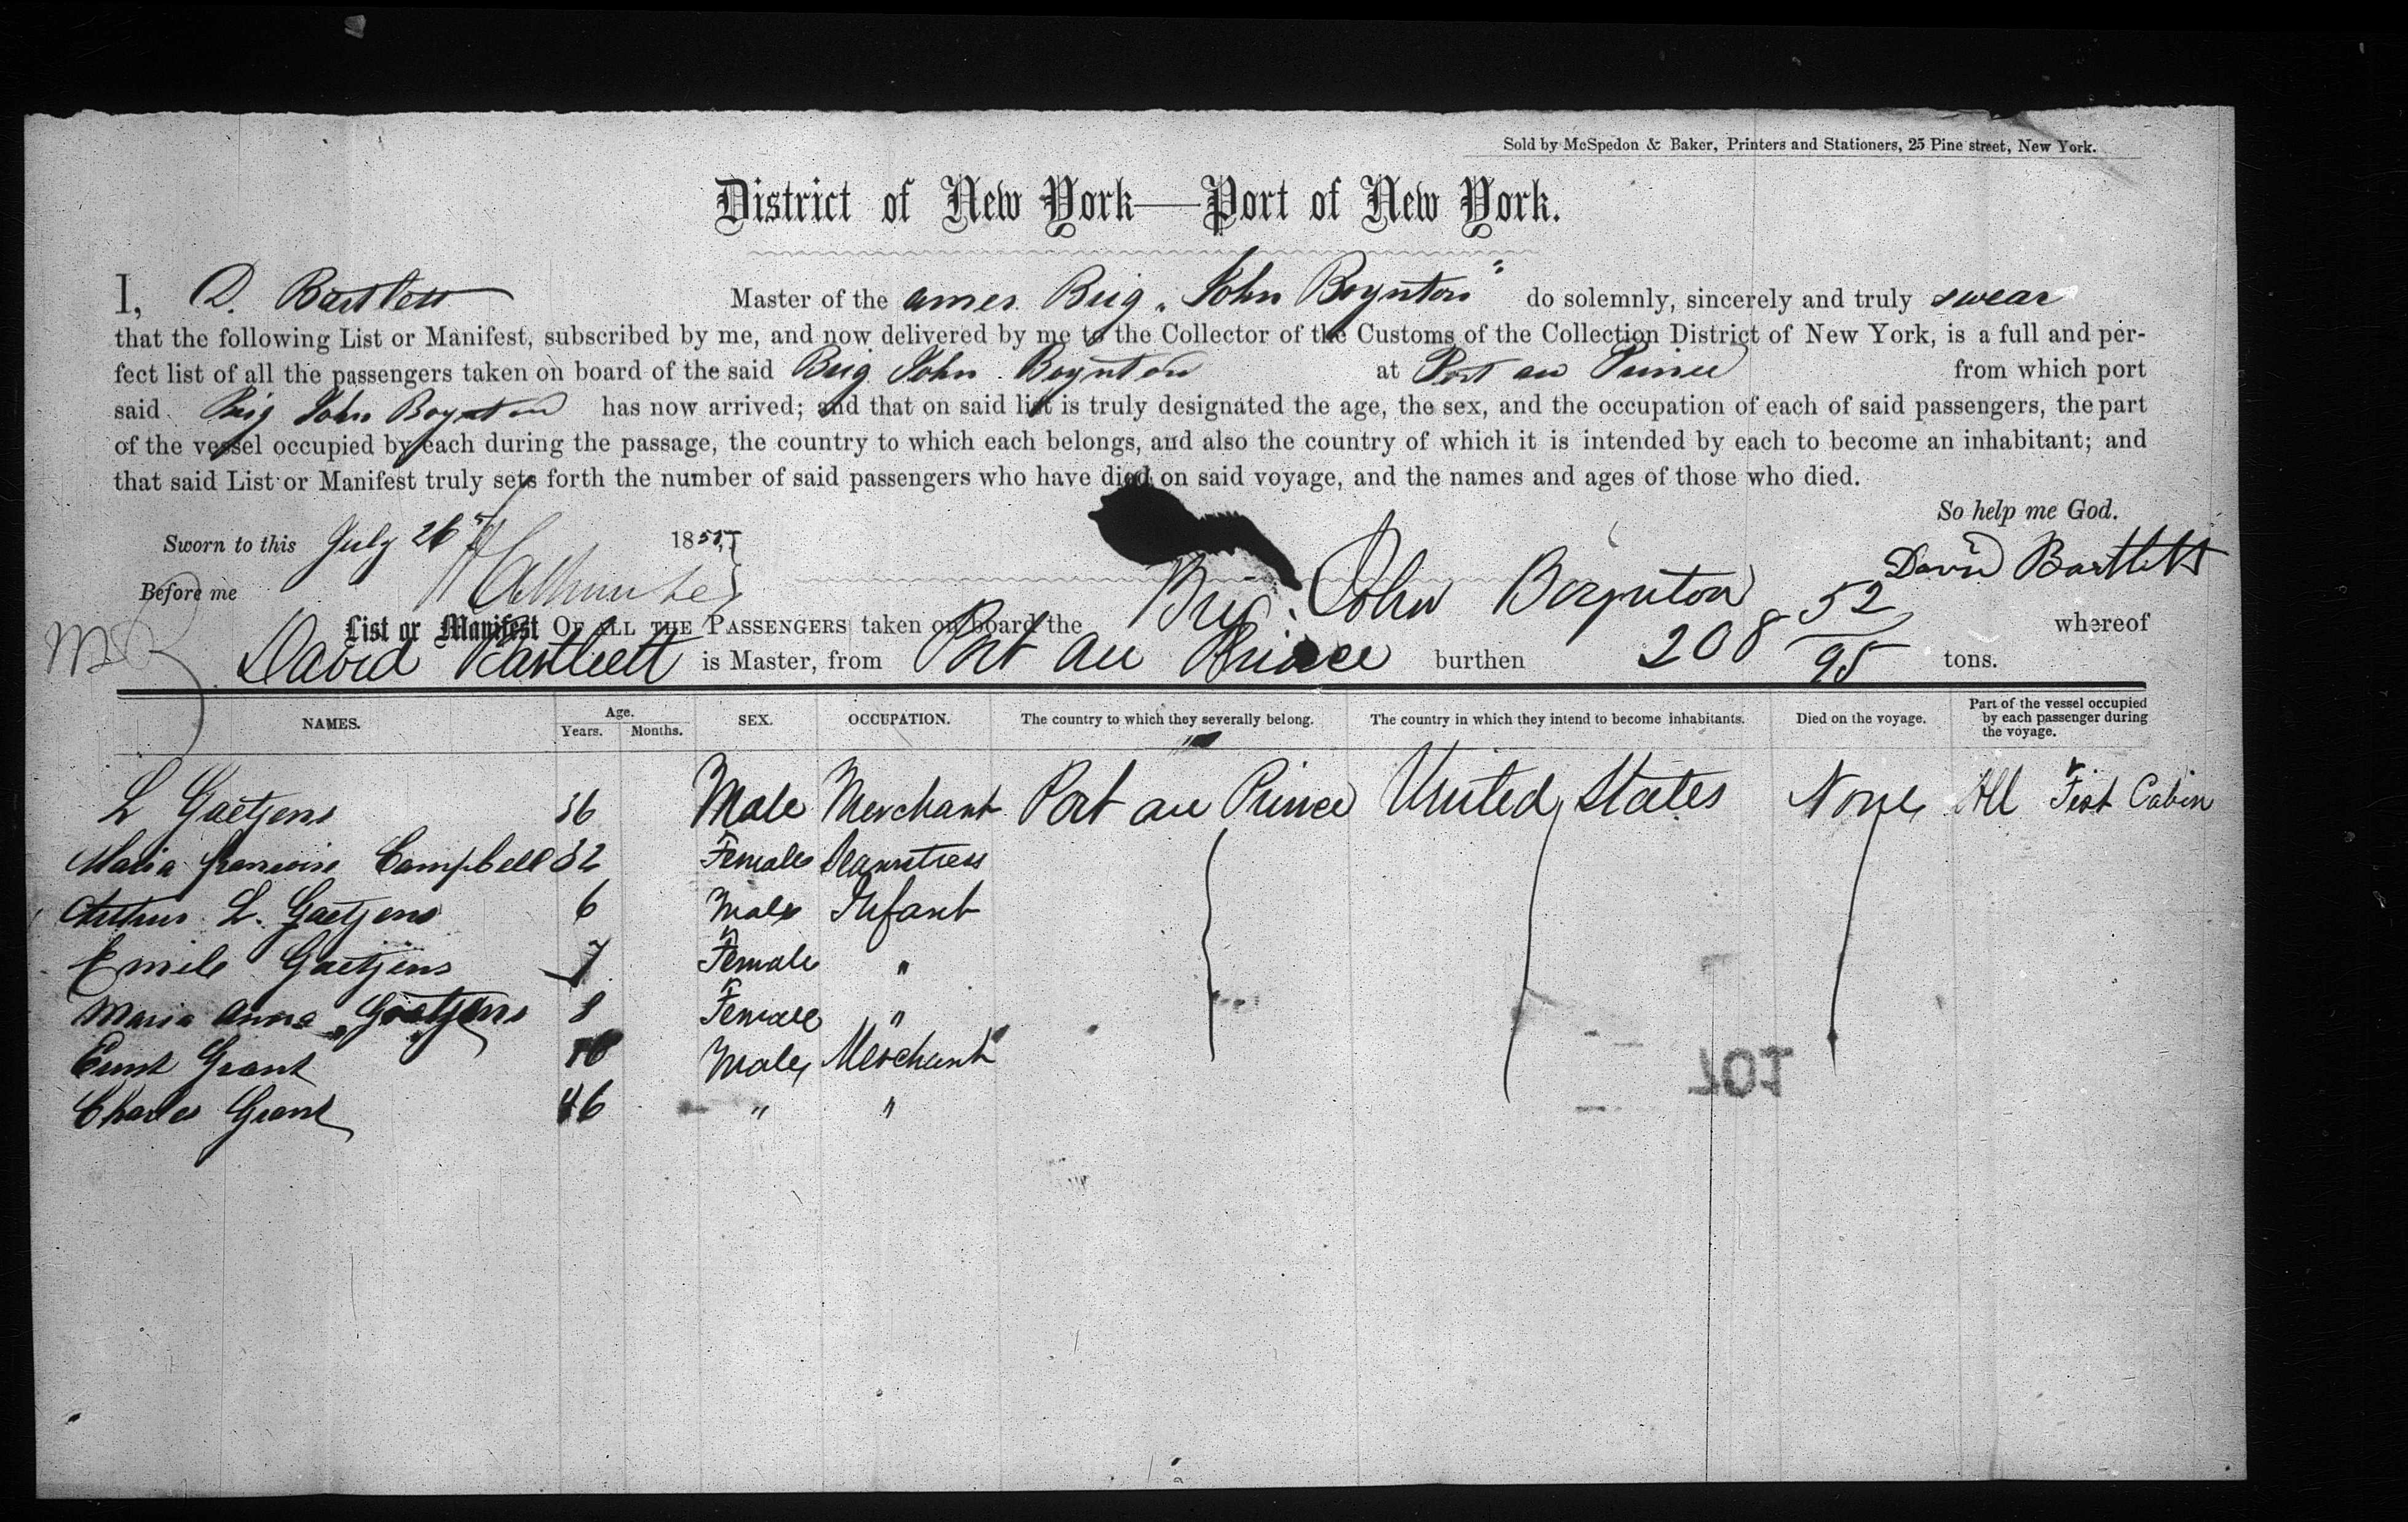 Sold by McSpedon & Baker, Printers and Stationers, 25 Pine street, New York.
District of New York—Port of New York.
I, D. Bartlett Master of the amer. Brig „ John Boynton" do solemnly, sincerely and truly swear
that the following List or Manifest, subscribed by me, and now delivered by me to the Collector of the Customs of the Collection District of New York, is a full and per-
fect list of all the passengers taken on board of the said Brig John Boynton at Port au Prince from which port
said Brig John Boynton has now arrived; and that on said list is truly designated the age, the sex, and the occupation of each of said passengers, the part
of the vessel occupied by each during the passage, the country to which each belongs, and also the country of which it is intended by each to become an inhabitant; and
that said List or Manifest truly sets forth the number of said passengers who have died on said voyage, and the names and ages of those who died.
So help me God.
Sworn to this July 26th 185
David Bartlett
Before me
List or Manifest OF ALL THE PASSENGERS taken on board the Brig. John Boynton whereof
David Bartlett is Master, from Port au Prince burthen 208 52/95 tons.
NAMES. Age. Years. Months. SEX. OCCUPATION. The country to which they severally belong. The country in which they intend to become inhabitants. Died on the voyage. Part of the vessel occupied by each passenger during the voyage.
L Gaetjens 36 Male Merchant Port au Prince United States None All First Cabin
Maria francoise Campbell 32 Female Seamstress
Arthur L. Gaetjens 6 Male Infant
Emile Gaetjens 7 Female "
Maria Anna Gaetjens 8 Female "
Grant Male Merchant
Charles Grant 46 " "
701